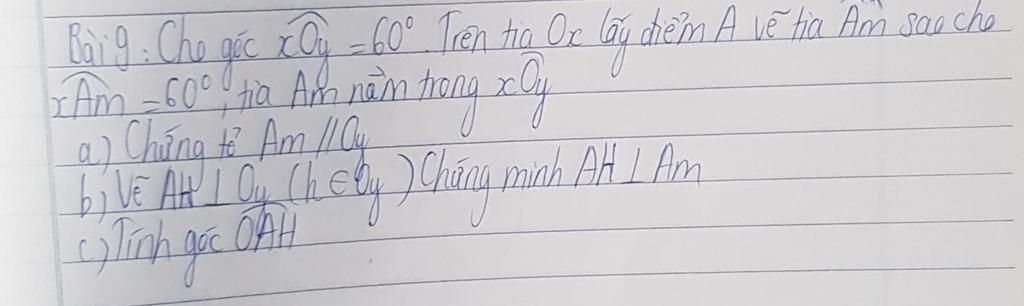 Bài 9: Cho góc xOy = 60° . Trên tia Ox lấy điểm A vẽ tia Am sao cho
xAm = 60°, tia Am nằm trong xOy
a) Chứng tỏ Am // Oy
b) Vẽ AH ⊥ Oy (h ∈ Oy) Chứng minh AH ⊥ Am
c) Tính góc OAH